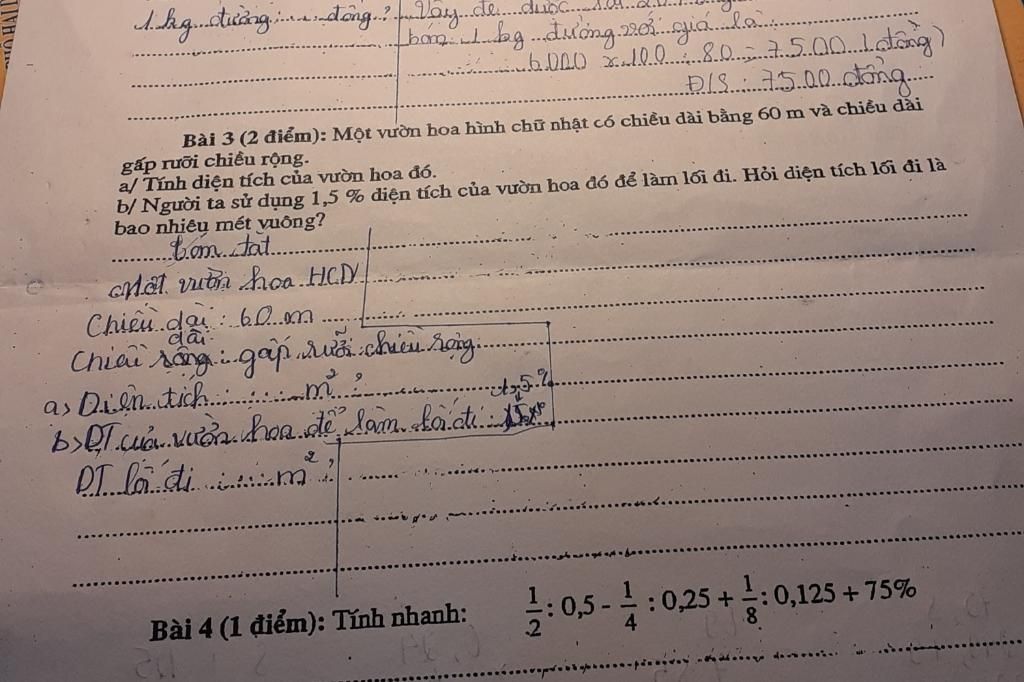 1 kg đường ...... đồng? Vậy để được
bán 1 kg đường với giá là
6000 x 100 : 80 = 7500 (đồng)
Đ/S : 7500 đồng
Bài 3 (2 điểm): Một vườn hoa hình chữ nhật có chiều dài bằng 60 m và chiều dài
gấp rưỡi chiều rộng.
a/ Tính diện tích của vườn hoa đó.
b/ Người ta sử dụng 1,5 % diện tích của vườn hoa đó để làm lối đi. Hỏi diện tích lối đi là
bao nhiêu mét vuông?
tóm tắt
Một vườn hoa HCN
Chiều dài : 60 m
dài
Chiều rộng : gấp rưỡi chiều rộng
a) Diện tích : ...... m² ?
1,5 %
b) DT của vườn hoa để làm lối đi :
DT lối đi ...... m² ?
Bài 4 (1 điểm): Tính nhanh: 1/2 : 0,5 - 1/4 : 0,25 + 1/8 : 0,125 + 75%